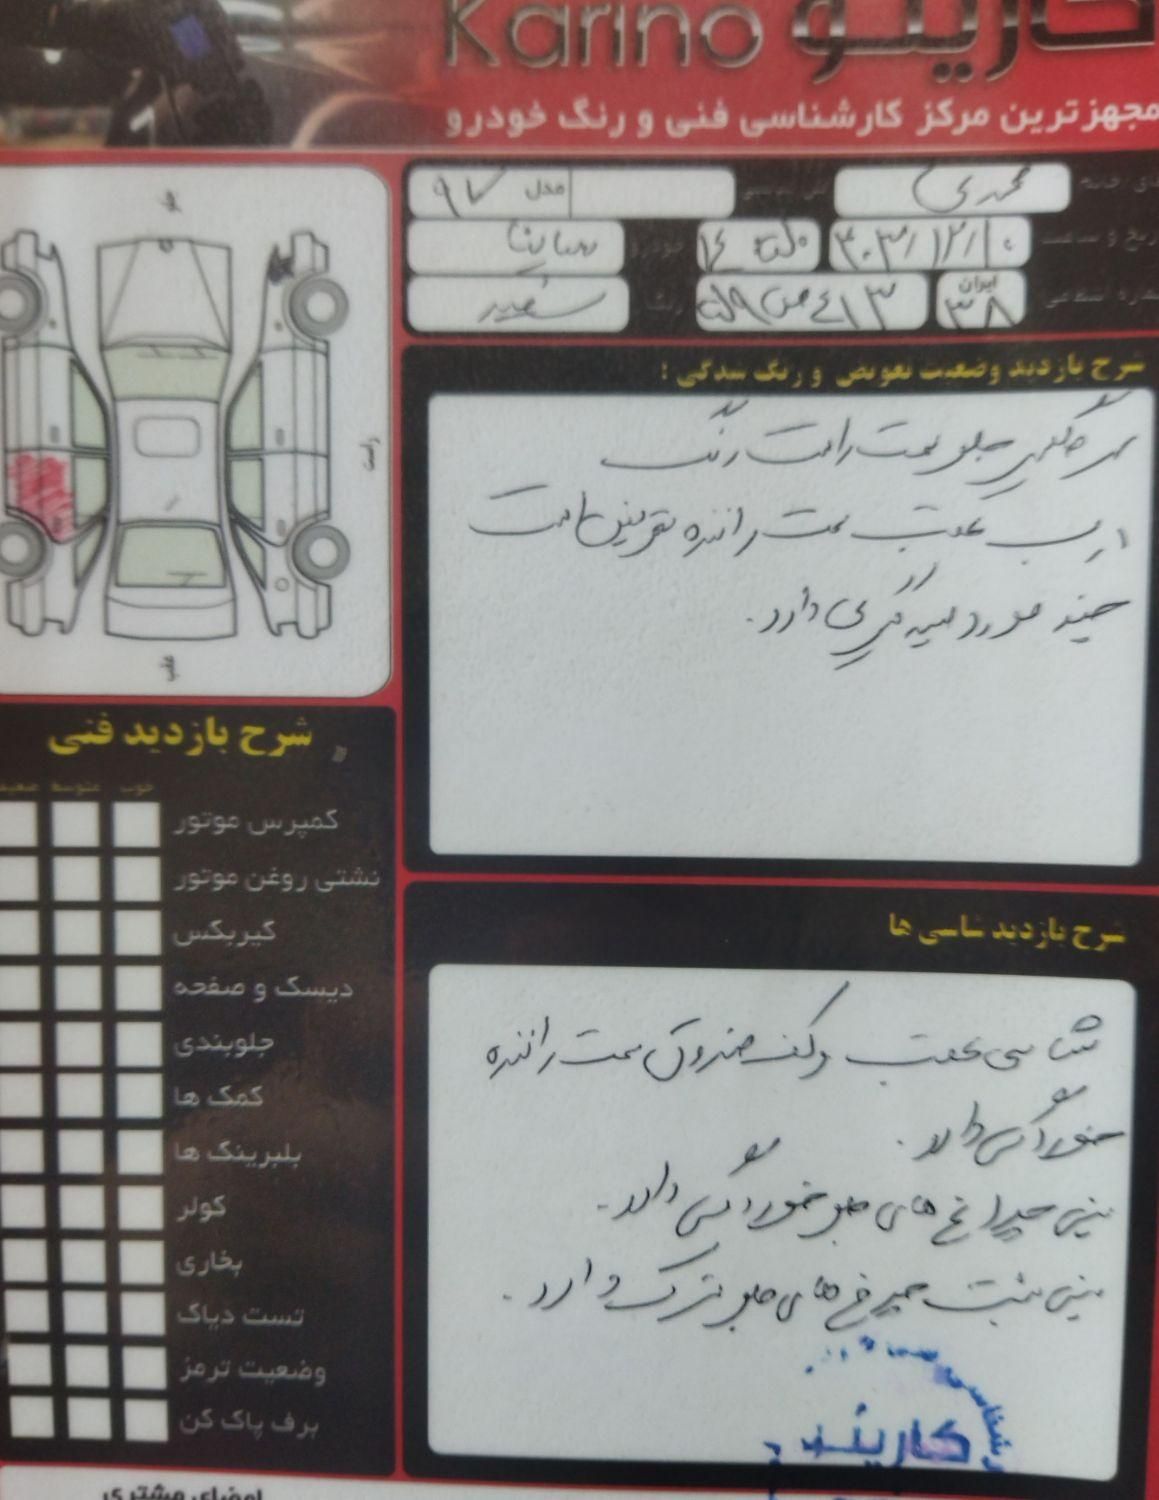 Karino کارینو
مجهزترین مرکز کارشناسی فنی و رنگ خودرو
محمدی
مدل ۹۷
تاریخ و ساعت ۴۰۳/۱۲/۱۰
خودرو ساینا
ایران ۳۸
رنگ سفید
جلو
راست
عقب
شرح بازدید وضعیت تعویض و رنگ شدگی :
سرگلگیر جلو سمت راست رنگ
درب عقب سمت راننده تعویض است
چند مورد لیسه گیری دارد.
شرح بازدید فنی
خوب متوسط ضعیف
کمپرس موتور
نشتی روغن موتور
گیربکس
دیسک و صفحه
جلوبندی
کمک ها
بلبرینگ ها
کولر
بخاری
تست دیاگ
وضعیت ترمز
برف پاک کن
شرح بازدید شاسی ها
شاسی عقب و کف صندوق سمت راننده
خوردگی دارد.
سینی چراغ های جلو خوردگی دارد.
سینی پشت چراغ های جلو ترک دارد.
کارینو
امضای مشتری